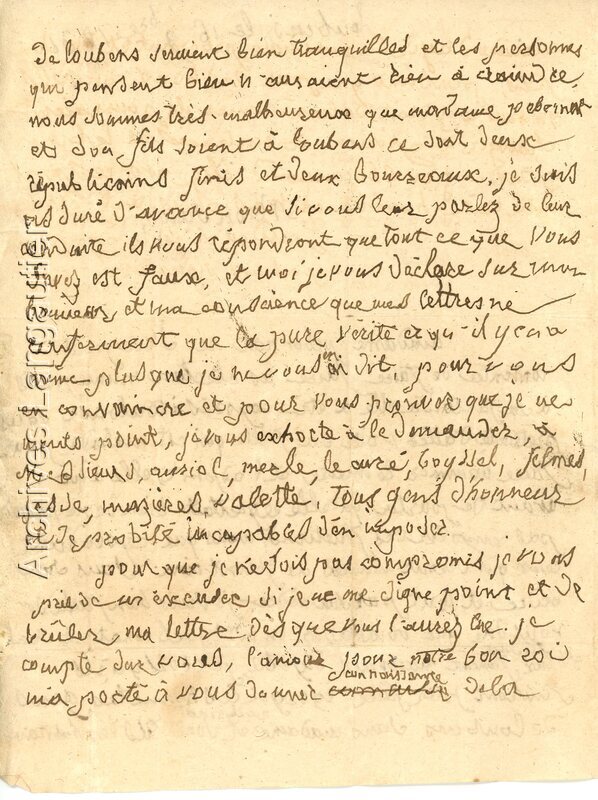 de loubens seraient bien tranquilles et les personnes
qui pensent bien n'auraient rien à craindre,
nous sommes très-malheureux que madame
et son fils soient à loubens ce sont deux
républicains finis et deux bourreaux. je suis
assuré d'avance que si vous leur parlez de leur
conduite ils vous répondront que tout ce que vous
avez est faux, et moi je vous déclare sur mon
honneur et ma conscience que mes lettres ne
renferment que la pure vérité et qu'il y en a
même plus que je ne vous en dit, pour vous
en convaincre et pour vous prouver que je ne
ments point, je vous exhorte à le demander, a
messieurs, auriol, merle, le curé, boyssel, felmes,
mazières, valette, tous gens d'honneur
et de probité incapables d'en imposer.
pour que je ne sois pas compromis je vous
prie de m'excuser si je ne me signe point et de
brûler ma lettre dès que vous l'aurez lue. je
compte sur vous, l'amour pour notre bon roi
m'a porté à vous donner connoissance de la
Archives-Langautier